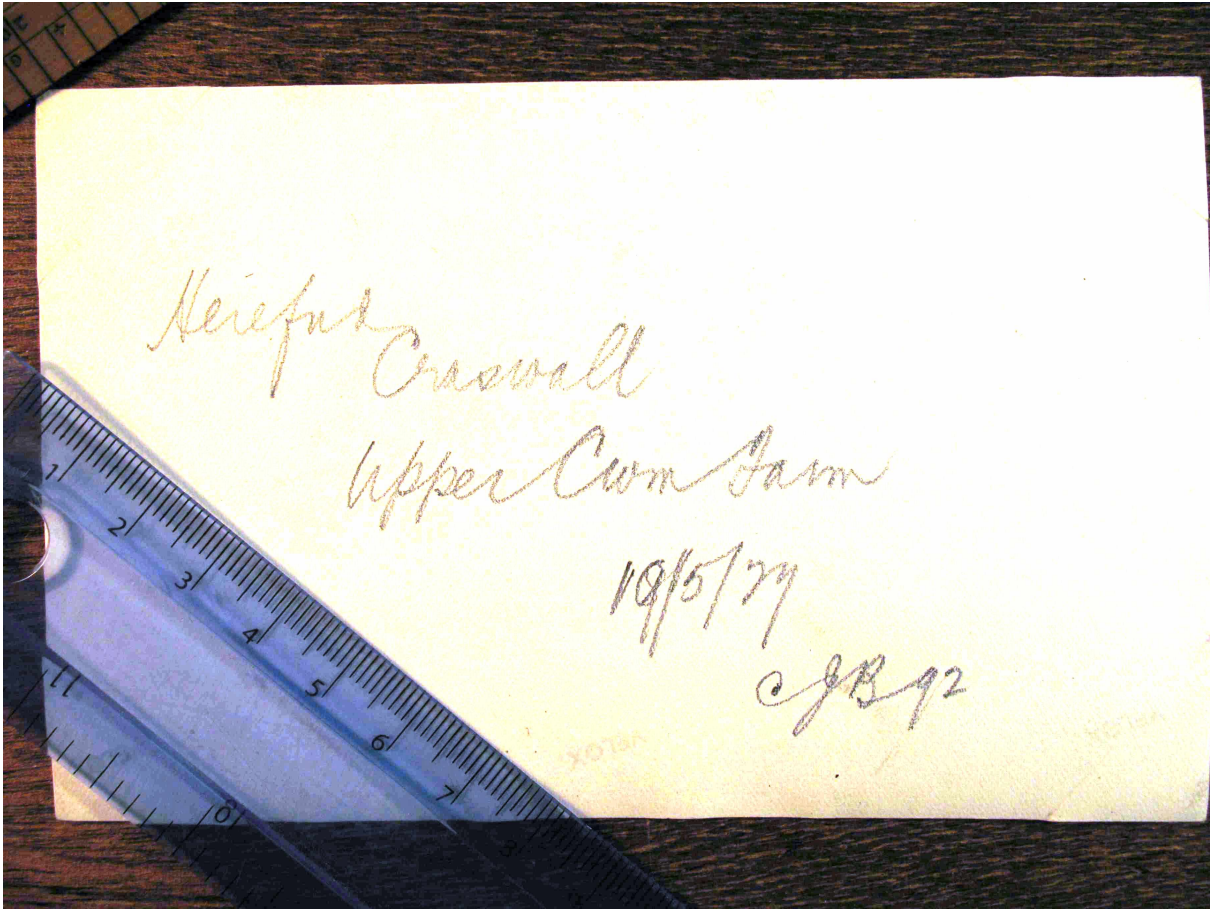 Hereford
Craswall
Upper Cwm Farm
18/5/29
CJB 92
VELOX
VELOX
1 2 3 4 5 6 7 8